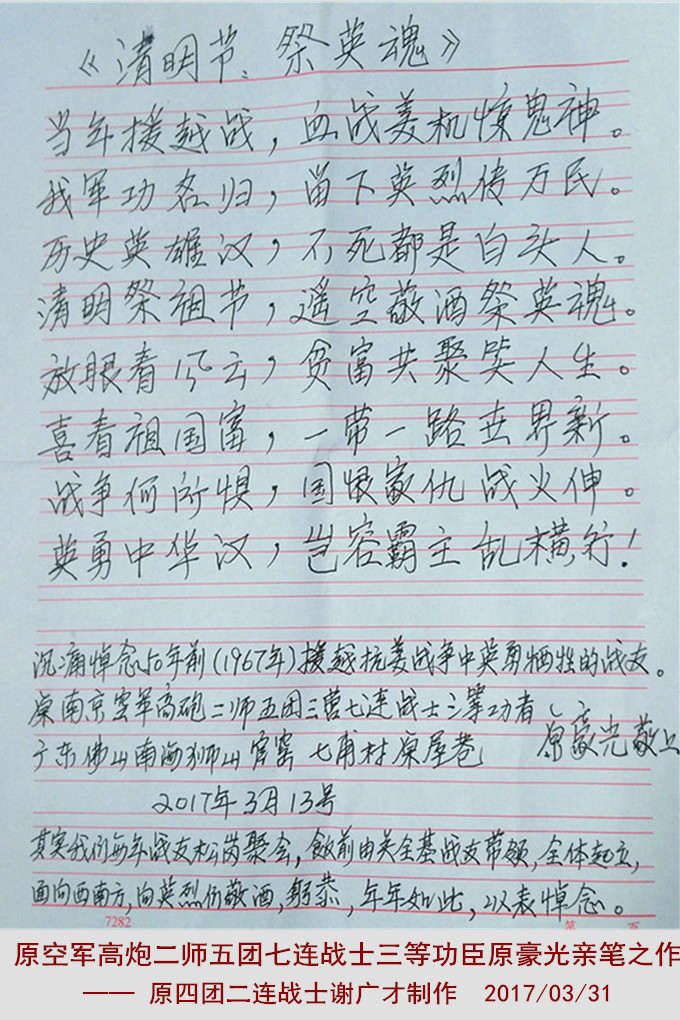 《清明节、祭英魂》
当年援越战，血战美机惊鬼神。
我军功名归，留下英烈传万民。
历史英雄汉，不死都是白头人。
清明祭祖节，遥空敬酒祭英魂。
放眼看风云，贫富共聚笑人生。
喜看祖国富，一带一路世界新。
战争何所惧，国恨家仇战火伸。
英勇中华汉，岂容霸主乱横行！
沉痛悼念50年前(1967年)援越抗美战争中英勇牺牲的战友。
原南京空军高砲二师五团三营七连战士三等功者
原豪光敬上
广东佛山南海狮山官窑七甫村原屋巷
2017年3月13号
其实我们每年战友松岗聚会，飯前由关全基战友带领，全体起立，
面向西南方，向英烈们敬酒，躬恭，年年如此，以表悼念。
7282
第 页
原空军高炮二师五团七连战士三等功臣原豪光亲笔之作
—— 原四团二连战士谢广才制作 2017/03/31